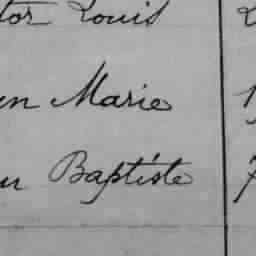 tor Louis
en Marie
Baptiste 7